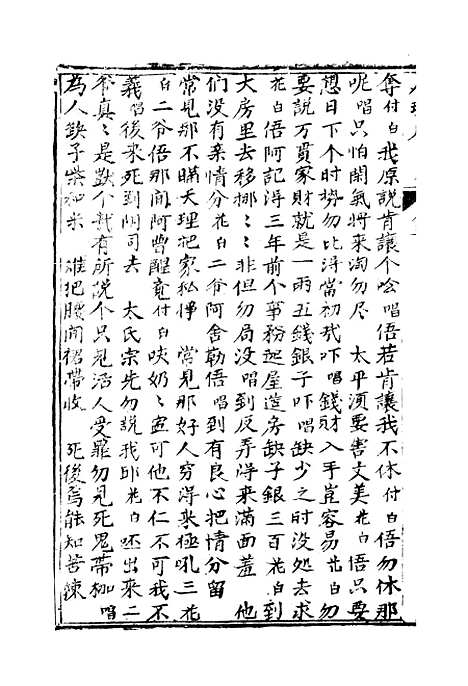 奪付白我原説肯讓个唅唱俉若肯讓我不休付白俉勿休那
呢唱只怕閙氣將来淘勿尽　太平須要害文美花白俉只要
想日下个时势勿比淂當初我吓唱錢財入手豈容易花白勿
要説万貫家財就是一両五錢銀子吓唱缺少之时没処去求
花白俉阿記淂三年前个事務起屋造房缺子銀三百花白到
大房里去移挪〻〻非但勿局没唱到反弄淂来滿面羞　他
们没有亲情分花白二爷阿舍勒俉唱到有良心把情分留
常見那不瞒天理把家私悖　常見那好人穷得来極吼三花
白二爷俉那间阿曹醒竟付白唊奶〻宣可他不仁不可我不
義唱後来死到阴司去　太氏宗先勿説我耶花白呸出来二
爷真〻是獃个説有所説个只見活人受罪勿見死鬼带枷唱
為人缺子柴和米　难把腰间裙带收　死後焉能知苦楝